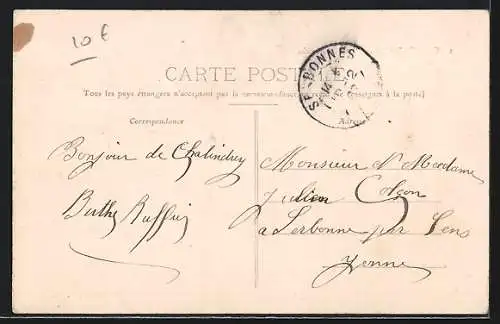 10 €
SERBONNES
CARTE POSTALE
Tous les pays étrangers n'acceptent pas la correspondance
à la poste)
Correspondance
Adresse
Bonjour de Chalindrey
Berthe Ruffier
Monsieur et Madame
Julien
à Serbonne par Sens
Yonne